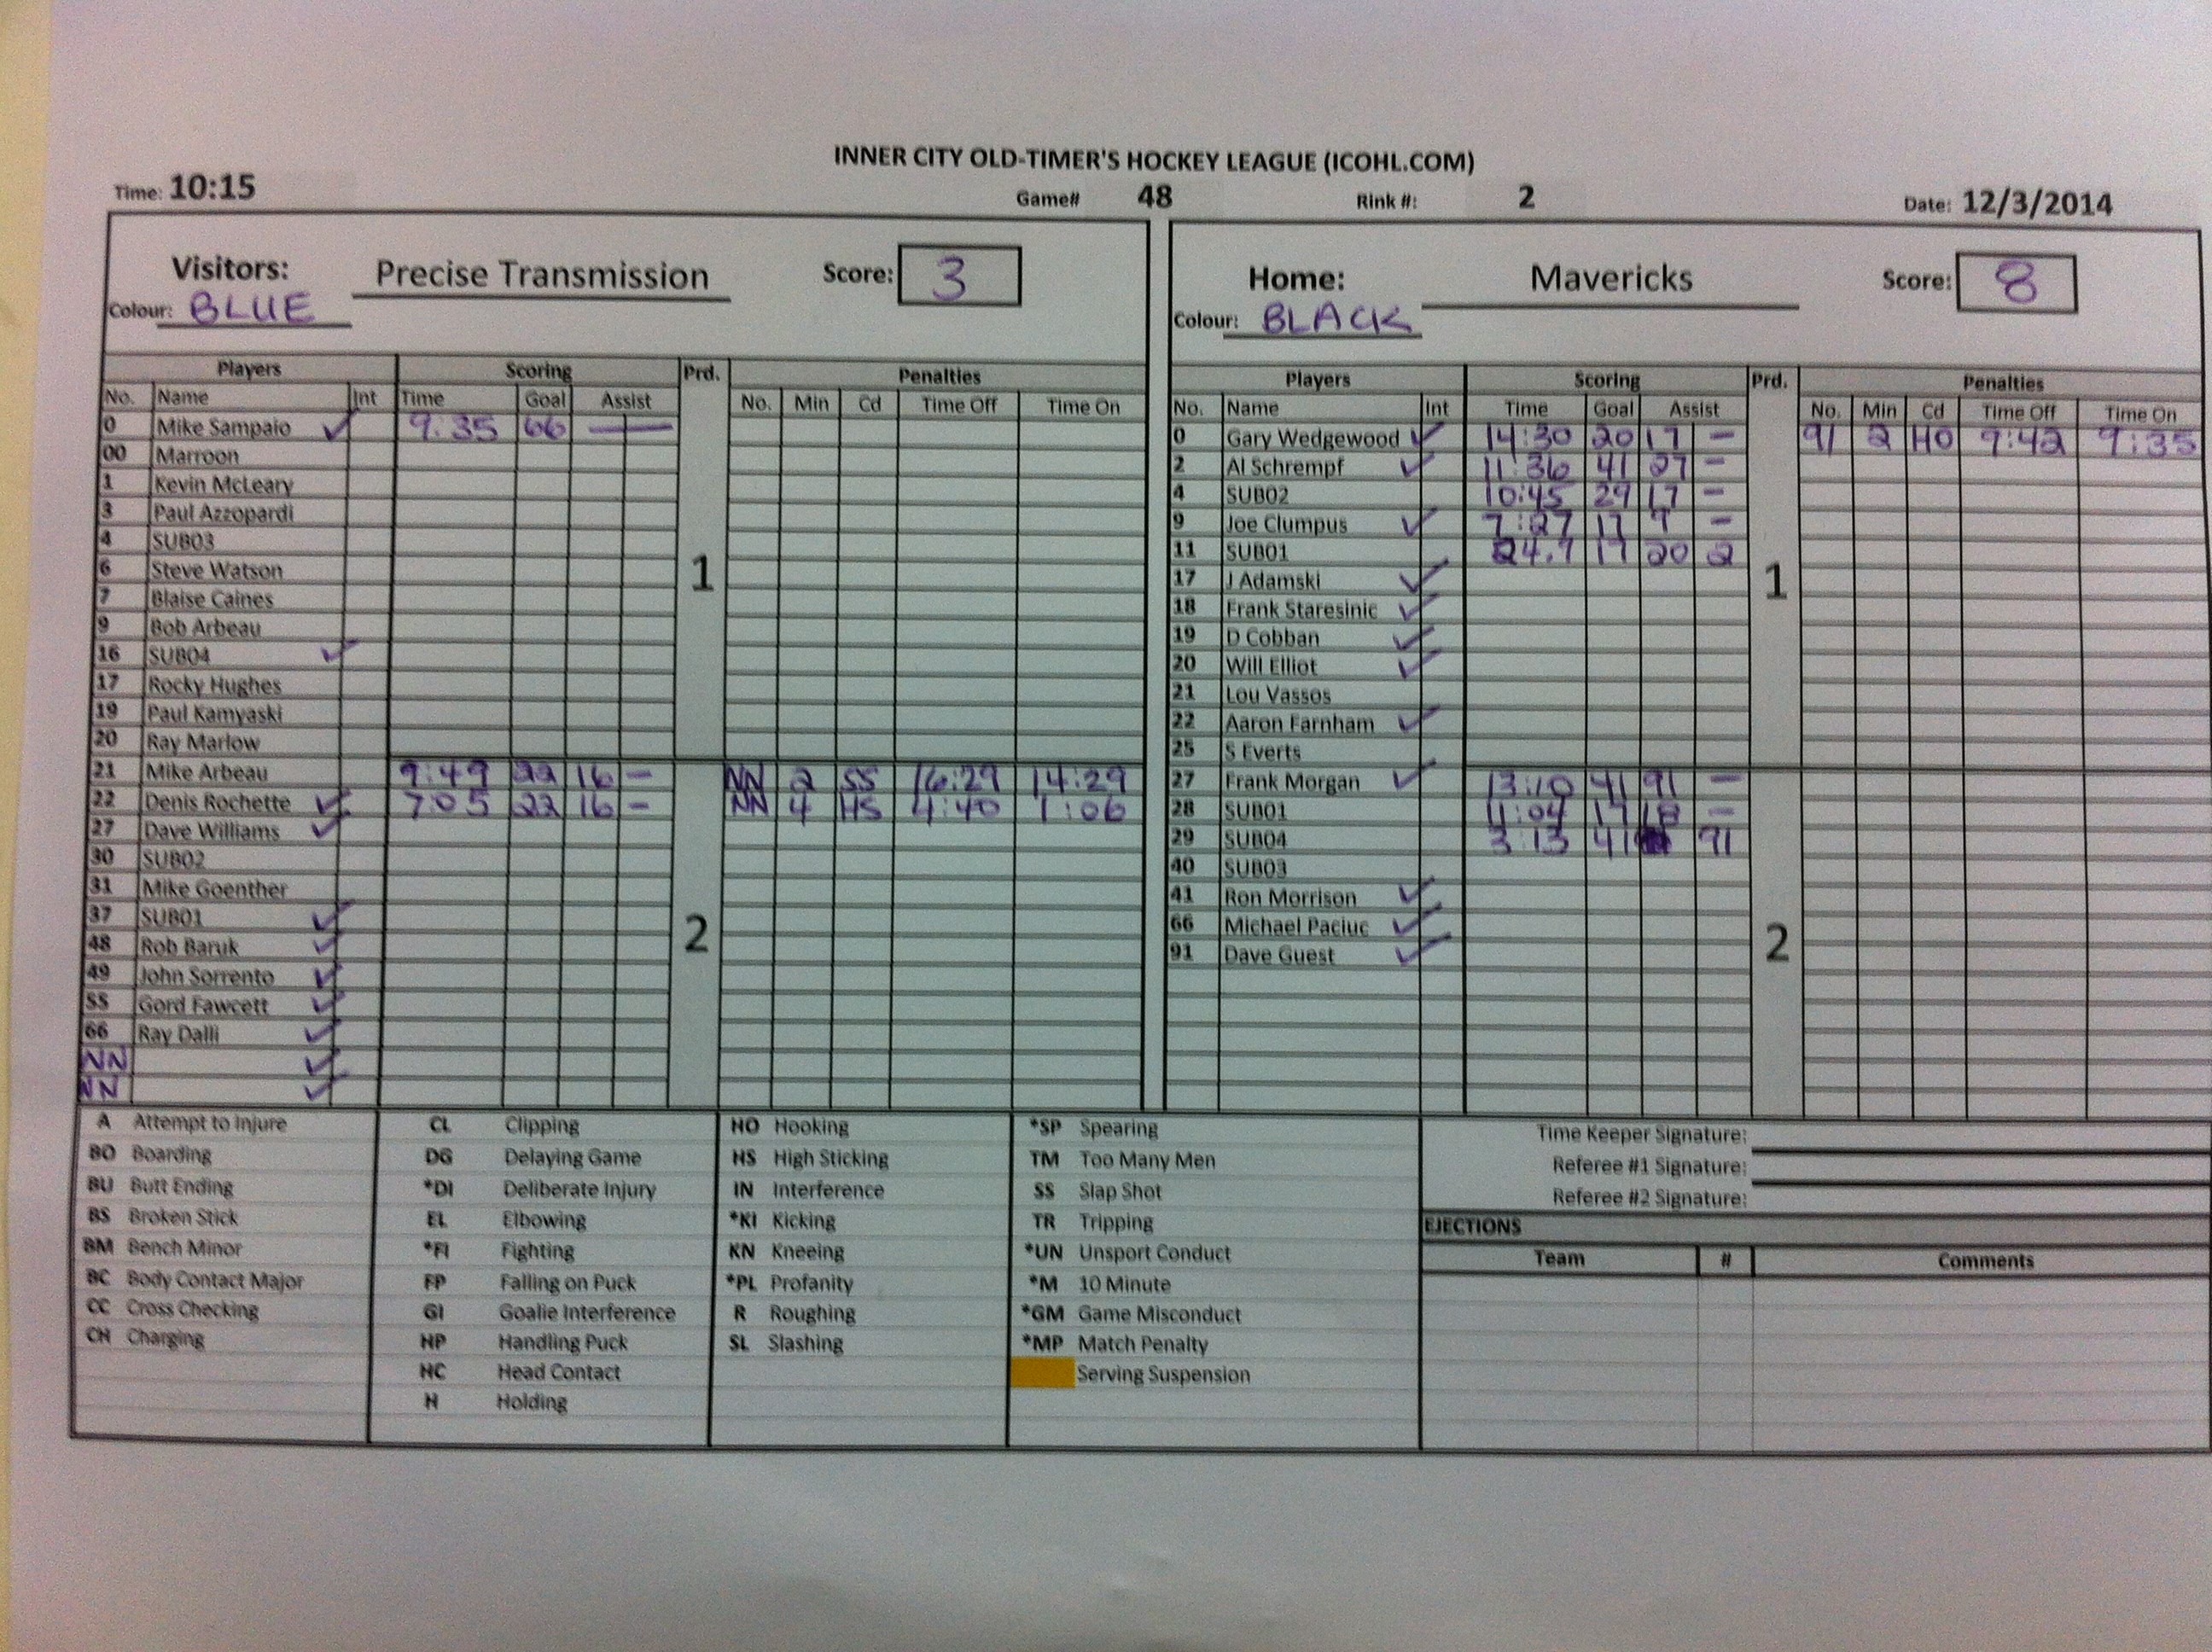 INNER CITY OLD-TIMER'S HOCKEY LEAGUE (ICOHL.COM)
Time: 10:15 Game# 48 Rink #: 2 Date: 12/3/2014
Visitors: Precise Transmission Score: 3
Colour: BLUE
Players Scoring Prd. Penalties
No. Name Int Time Goal Assist No. Min Cd Time Off Time On
0 Mike Sampaio ✓ 9:35 66 —
00 Marroon
1 Kevin McLeary
3 Paul Azzopardi
4 SUB03
6 Steve Watson
1
7 Blaise Caines
9 Bob Arbeau
16 SUB04 ✓
17 Rocky Hughes
19 Paul Kamyaski
20 Ray Marlow
21 Mike Arbeau 9:49 22 16 - NN 2 SS 16:29 14:29
22 Denis Rochette ✓ 7:05 22 16 - NN 4 HS 4:40 1:06
27 Dave Williams ✓
30 SUB02
31 Mike Goenther
37 SUB01 ✓
2
48 Rob Baruk ✓
49 John Sorrento ✓
55 Gord Fawcett ✓
66 Ray Dalli ✓
NN ✓
NN ✓
Home: Mavericks Score: 8
Colour: BLACK
Players Scoring Prd. Penalties
No. Name Int Time Goal Assist No. Min Cd Time Off Time On
0 Gary Wedgewood ✓ 14:30 20 17 - 91 2 HO 9:42 9:35
2 Al Schrempf ✓ 11:36 41 27 -
4 SUB02 10:45 29 17 -
9 Joe Clumpus ✓ 7:27 17 9 -
11 SUB01 24.7 17 20 2
17 J Adamski ✓
1
18 Frank Staresinic ✓
19 D Cobban ✓
20 Will Elliot ✓
21 Lou Vassos
22 Aaron Farnham ✓
25 S Everts
27 Frank Morgan ✓ 13:10 41 91 -
28 SUB01 11:04 17 18 -
29 SUB04 3:13 41 91
40 SUB03
41 Ron Morrison ✓
66 Michael Paciuc ✓
2
91 Dave Guest ✓
A Attempt to Injure
BO Boarding
BU Butt Ending
BS Broken Stick
BM Bench Minor
BC Body Contact Major
CC Cross Checking
CH Charging
CL Clipping
DG Delaying Game
*DI Deliberate Injury
EL Elbowing
*FI Fighting
FP Falling on Puck
GI Goalie Interference
HP Handling Puck
HC Head Contact
H Holding
HO Hooking
HS High Sticking
IN Interference
*KI Kicking
KN Kneeing
*PL Profanity
R Roughing
SL Slashing
*SP Spearing
TM Too Many Men
SS Slap Shot
TR Tripping
*UN Unsport Conduct
*M 10 Minute
*GM Game Misconduct
*MP Match Penalty
Serving Suspension
Time Keeper Signature:
Referee #1 Signature:
Referee #2 Signature:
EJECTIONS
Team # Comments